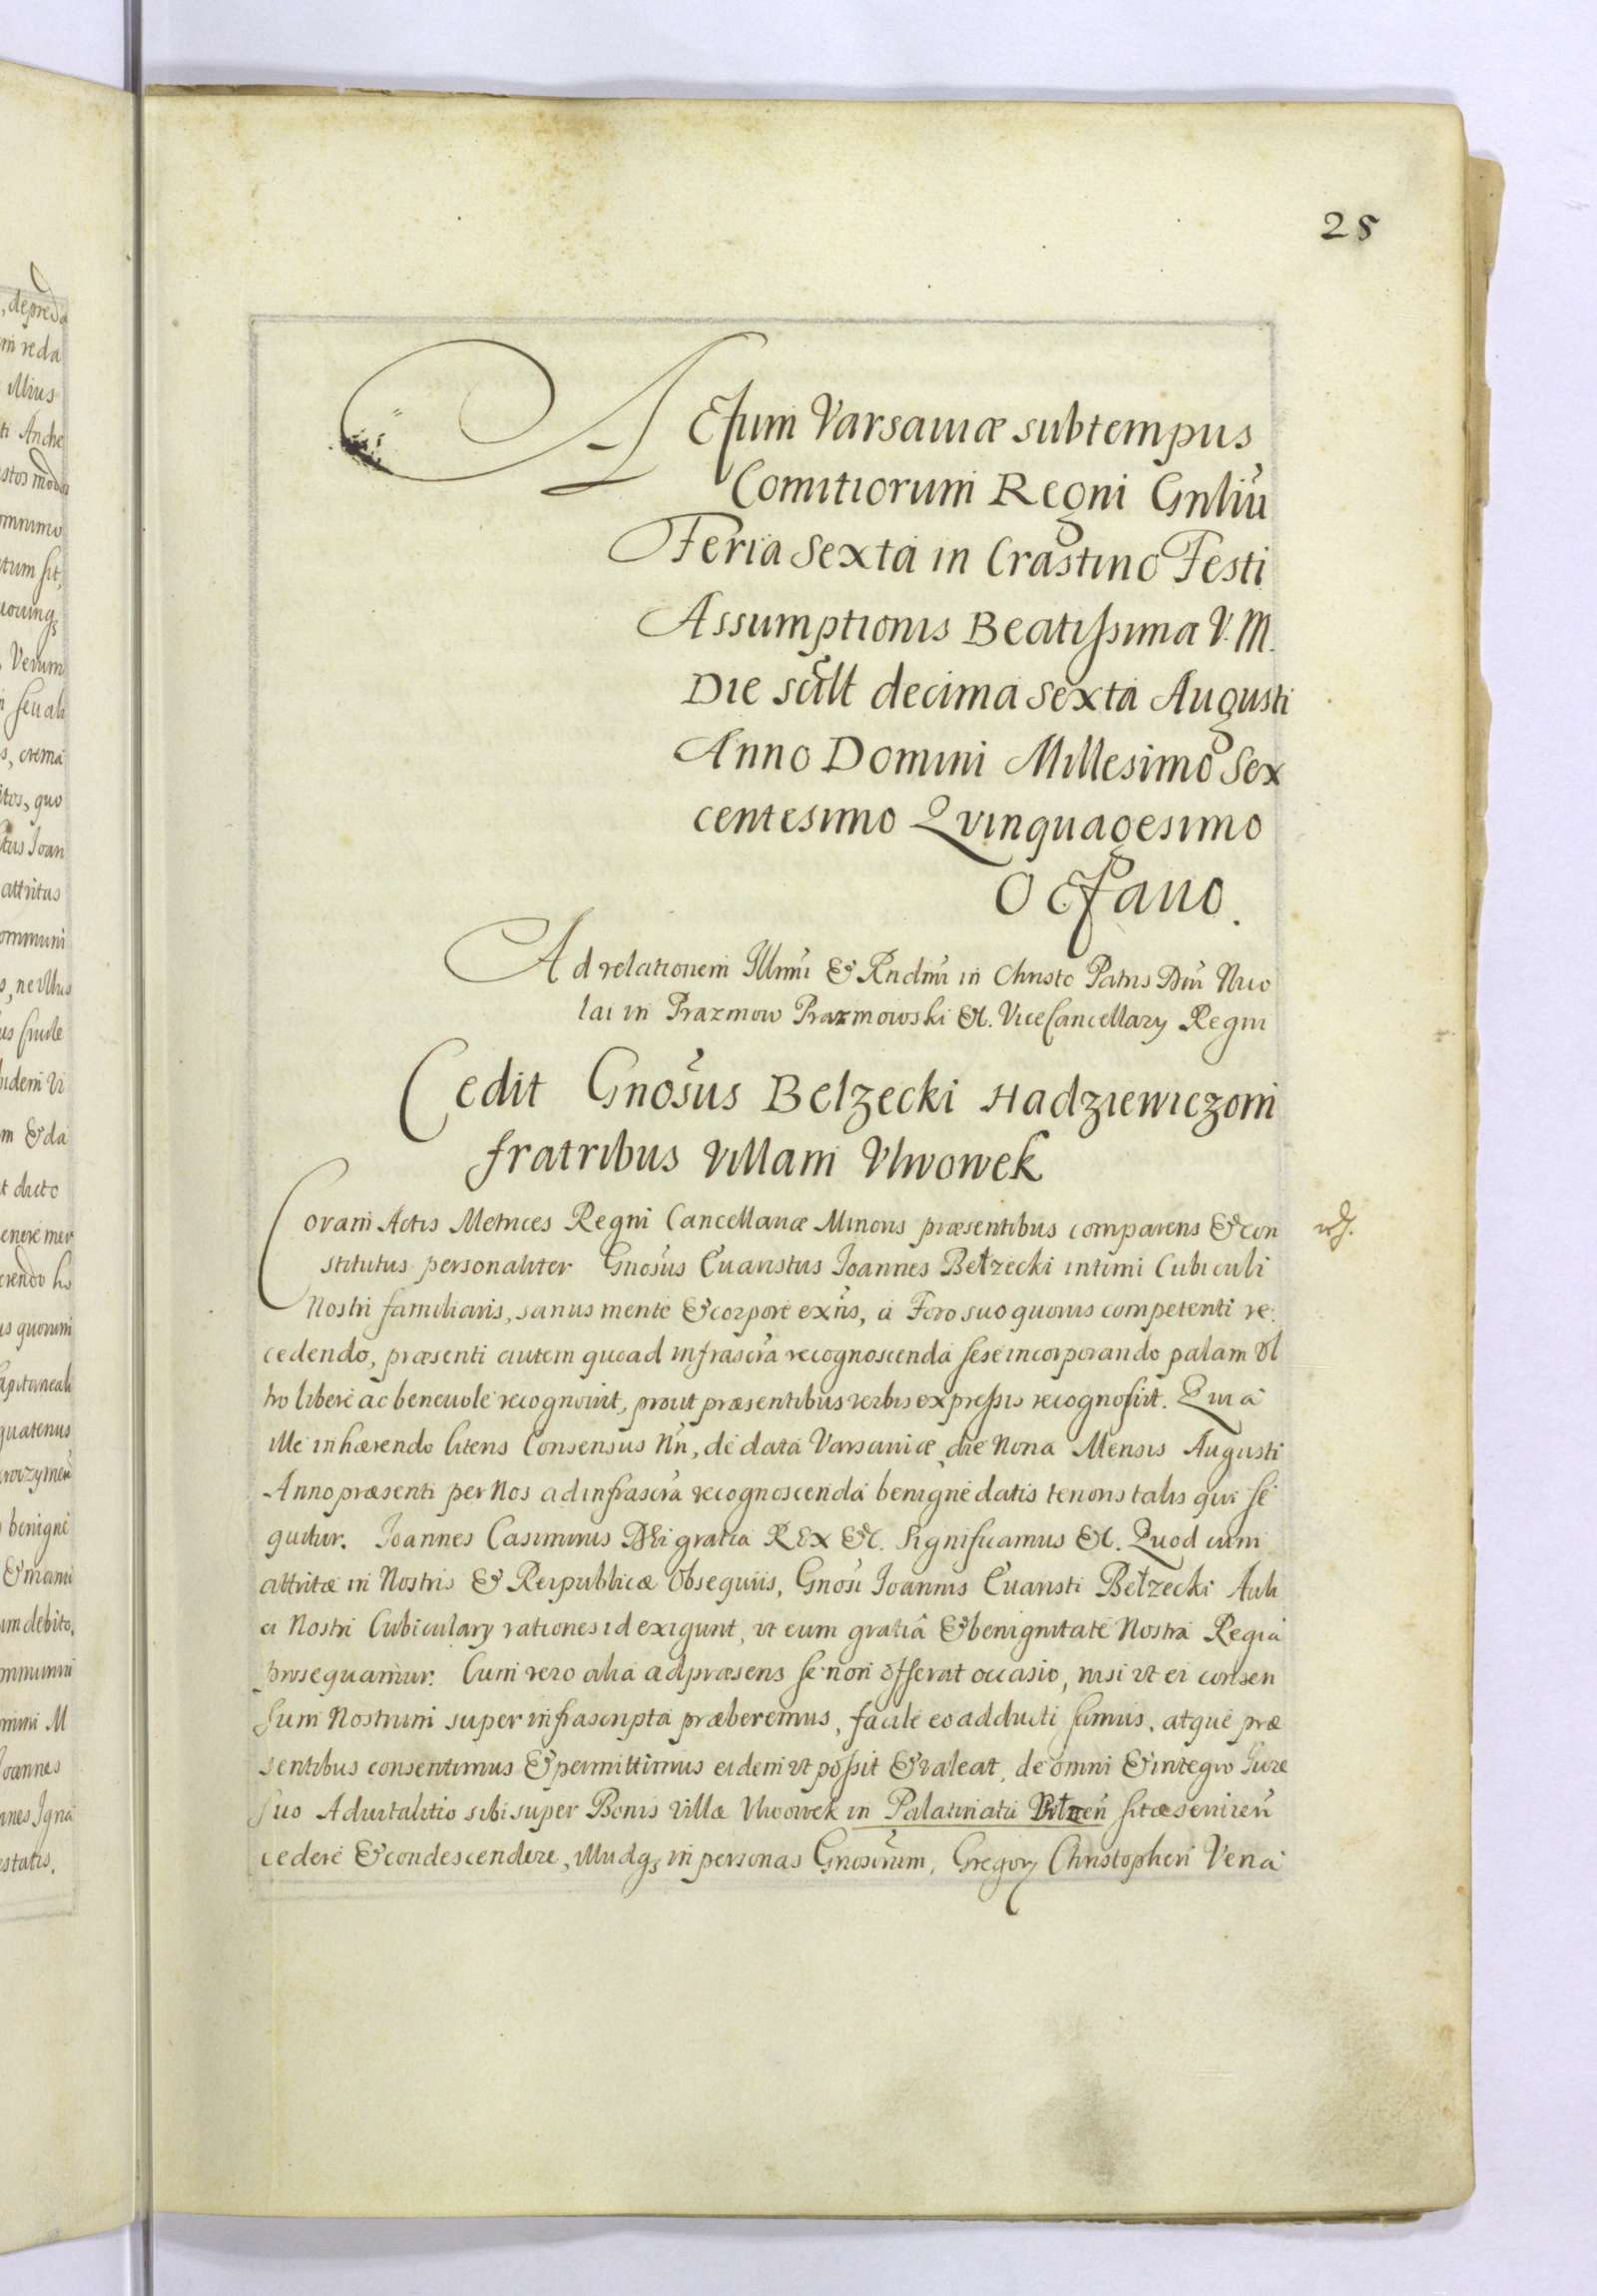 25
Actum Varsaviæ sub tempus
Comitiorum Regni Gnliũ
Feria Sexta in Crastino Festi
Assumptionis Beatissima V. M.
Die scilt decima sexta Augusti
Anno Domini Millesimo Sex
centesimo Qvinquagesimo
Octauo.
Ad relationem Illmi & Rndmi in Christo Patris Dni Nico
lai in Prazmow Prazmowski &c. ViceCancellarij Regni
Cedit Gnosus Belzecki Hadziewiczom
fratribus villam Vlwowek
Coram Actis Metrices Regni Cancellariæ Minoris præsentibus comparens & con
stitutus personaliter Gnosus Euaristus Joannes Bełzecki intimi Cubiculi
Nostri familiaris, sanus mente & corpore exñs, à Foro suo quovis competenti re
cedendo, præsenti autem quoad infrascra recognoscenda sese incorporando palam vl
tro liberè ac beneuole recognouit, prout præsentibus verbis expressis recognoscit. Quia
ille inhærendo literis Consensus Nri, de data Varsaviæ die Nona Mensis Augusti
Anno præsenti per Nos ad infrascra recognoscenda benignè datis tenoris talis qui se
quitur. Joannes Casimirus Dei gratia REX &c. Significamus &c. Quod cum
attritæ in Nostris & Reipublicæ obsequiis, Gnosi Joannis Euaristi Bełzecki Auli
ci Nostri Cubicularij rationes id exigunt, vt eum gratiâ & benignitate Nostra Regia
prosequamur. Cum vero alia ad præsens se non offerat occasio, nisi vt ei consen
sum Nostrum super infrascripta præberemus, facile eo adducti sumus, atque præ
sentibus consentimus & permittimus eidem vt possit & valeat, de omni & integro Jure
suo Aduitalitio sibi super Bonis Villæ Vlwowek in Palatinatu Bełzen sitæ seruien
cedere & condescendere, illudq in personas Gnosorum, Gregorij Christopheri Vena